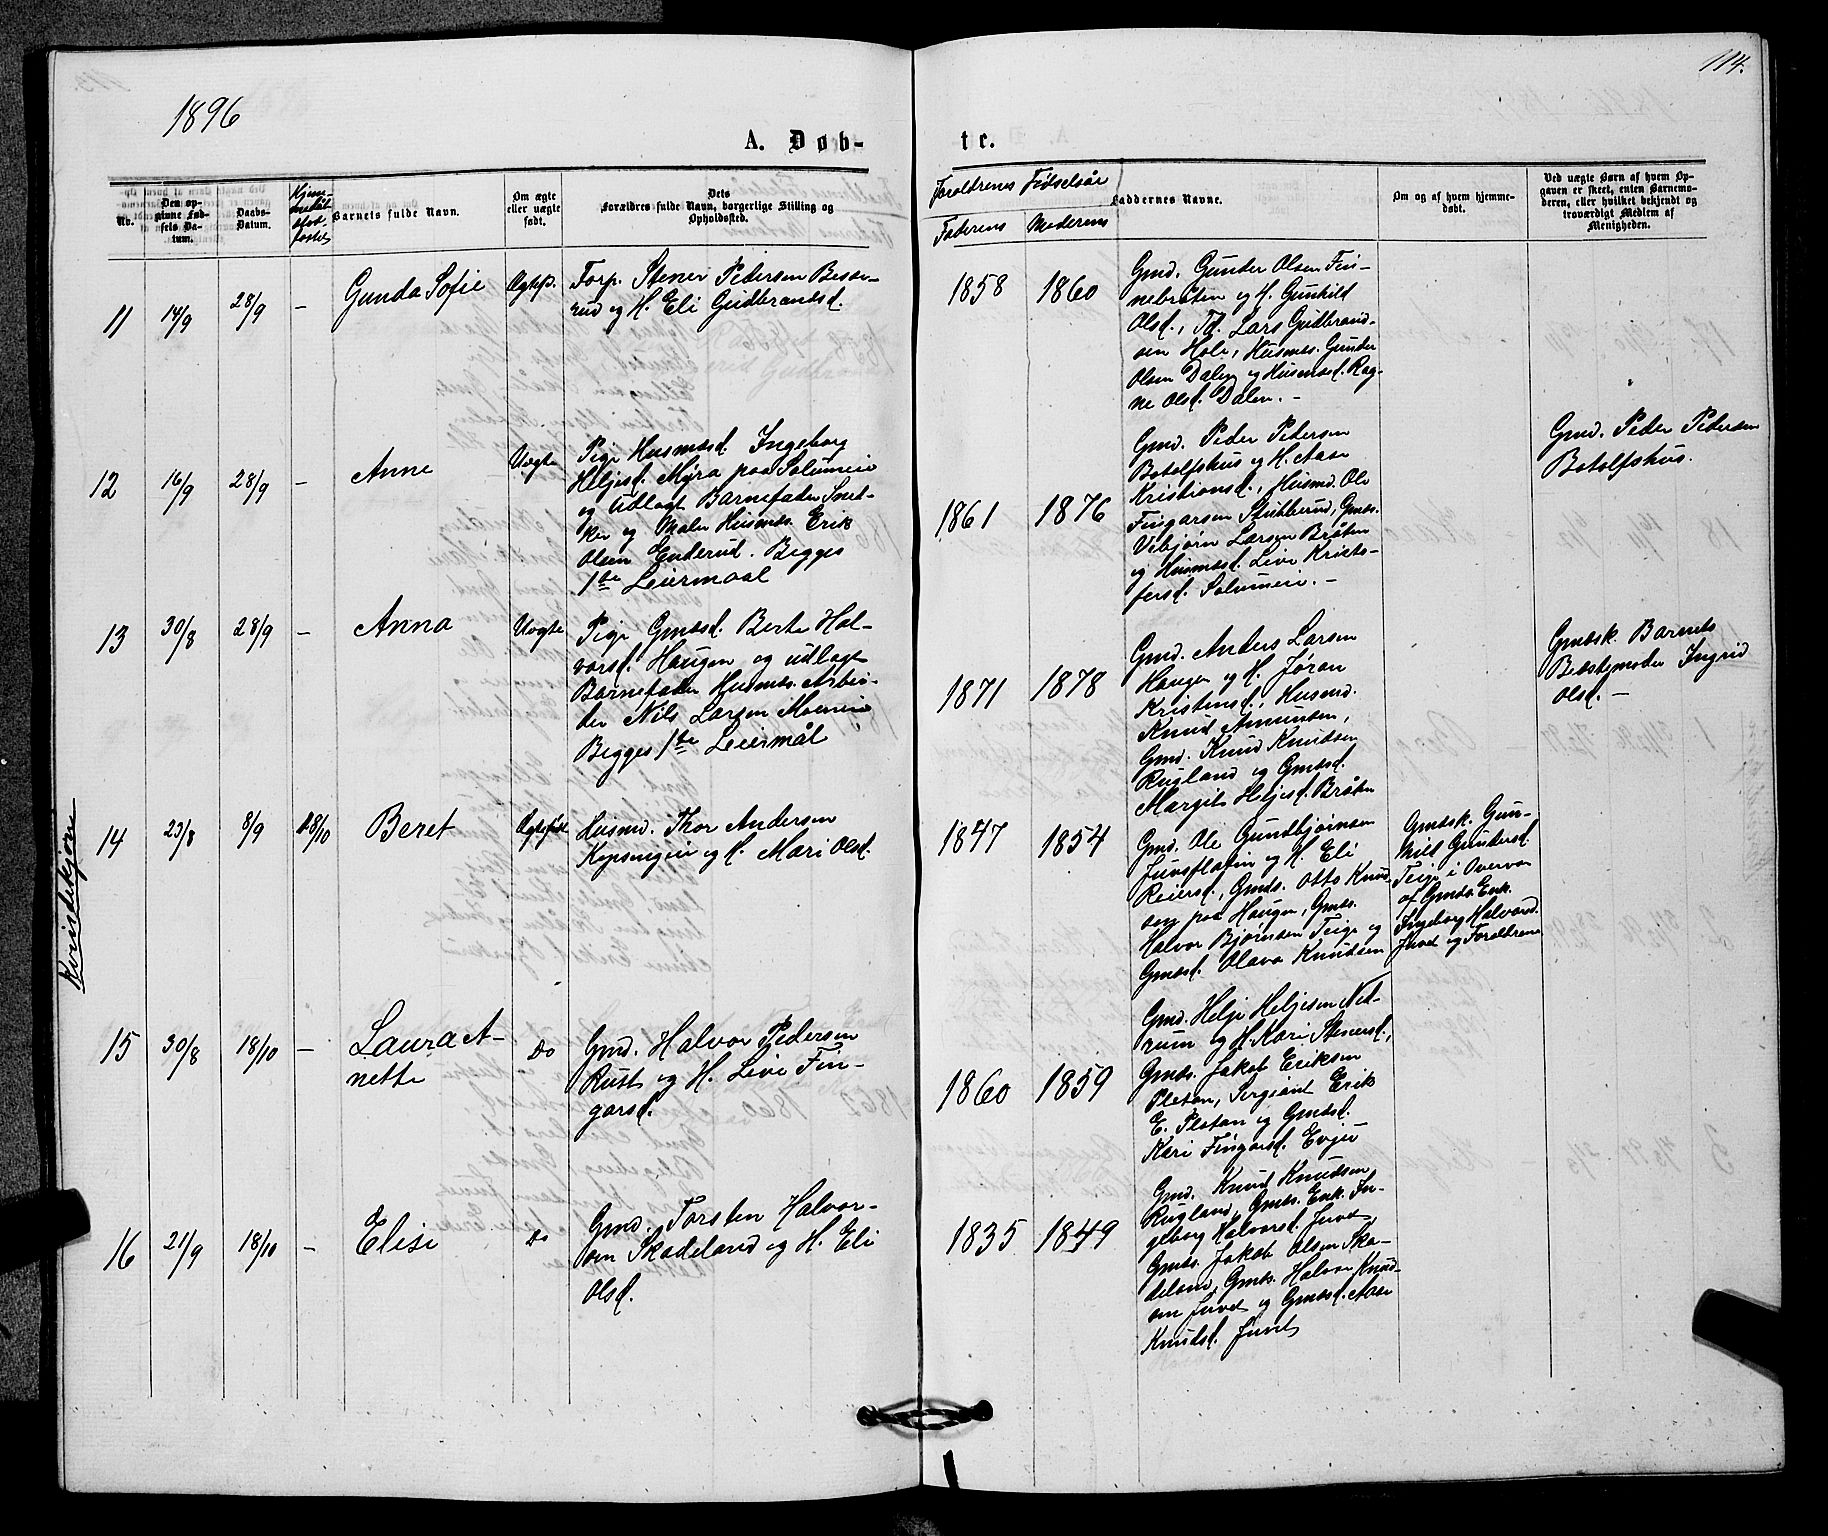 1896
114.
A. Døb-
te.
Nr.
Den op-
givne Fød-
sels Da-
tum.
Daabs-
Datum.
Hjem-
medåb
Barnets fulde Navn.
Om ægte
eller uægte
født.
Dets
Forældres fulde Navn, borgerlige Stilling og
Opholdssted.
Foræl­drenes Fødselsår
Faderens
Moderens
Faddernes Navne.
Om og af hvem hjemme-
døbt.
Ved uægte Børn af hvem Op-
gaven er skeet, enten Barnemo-
deren, eller hvilket bekjendt og
troværdigt Medlem af
Menigheden.
Kvindekjøn
11
14/9
28/9
-
Gunda Sofie
Ægtef.
Forp. Stener Pedersen Besse-
rud og H. Eli Gudbrandsd.
1858
1860
Gmd. Gunder Olsen Fin-
nebråten og H. Gunhild
Olsd., Td. Lars Gudbrand-
sen Hole, Husmds. Gunder
Olsen Dalen og Husmdsd. Rag-
ne Olsd. Dalen. -
12
16/9
28/9
-
Anne
Uægte
Pige Husmdsd. Ingeborg
Heljesd. Myra paa Solumeie
og Udlagt Barnefader Sned-
ker og Maler Husmds. Erik
Olsen Enderud. Begges
1ste Leiermaal
1861
1876
Gmd. Peder Pedersen
Botolfshus og H. Aase
Kristiansd., Husmd. Ole
Fingarsen Stubberud, Gmds.
Vebjørn Larsen Bråten
og Husmdsd. Live Kristo-
fersd. Solumeie. -
Gmd. Peder Pedersen
Botolfshus.
13
30/8
28/9
-
Anna
Uægte
Pige Gmdsd. Berte Hal-
vorsd. Haugen og udlagt
Barnefader Husmds. Arbei-
der Nils Larsen Moeneie
Begges 1ste Leiermål
1871
1878
Gmd. Anders Larsen
Haugen og H. Jøran
Kristensd., Husmd.
Knud Amundsen,
Gmd. Knud Knudsen
Rugland og Gmdsd.
Margit Heljesd. Bråten
Gmdsk. Barnets
Bedstemoder Ingrid
Olsd. -
14
23/8
8/9
18/10
Beret
Ægtefødt
Husmd. Thor Andersen
Kopsengeie og H. Mari Olsd.
1847
1854
Gmd. Ole Gundbjørnsen
Juvsflaten og H. Eli
Reiersd., Gmds. Otto Knud-
sen paa Haugen, Gmds.
Halvor Bjørnsen Teige og
Gmdsd. Olava Knudsen
Gmdsk. Gun-
hild Gundersd.
Teige i Overvær
af Gmds Enk.
Ingeborg Halvorsd.
Juvet og Forældrene
15
30/8
18/10
-
Laura A-
nette
Do
Gmd. Halvor Pedersen
Rust og H. Live Fin-
garsd.
1860
1859
Gmd. Helje Heljesen Ned-
rum og H. Kari Stenersd.,
Gmds. Jakob Eriksen
Pleten, Sergiant Erik
E. Pletan og Gmdsd.
Kari Fingarsd. Evjee
16
21/9
18/10
-
Elise
Do
Gmd. Torsten Halvor-
sen Skadeland og H. Eli
Olsd.
1835
1849
Gmd. Knud Knudsen
Rugland, Gmds. Enk. In-
geborg Halvorsd. Juvet
Gmds. Jakob Olsen Ska-
deland, Gmds. Halvor Knud-
sen Juvet og Gmdsd. Aase
Knudsd. Juvet